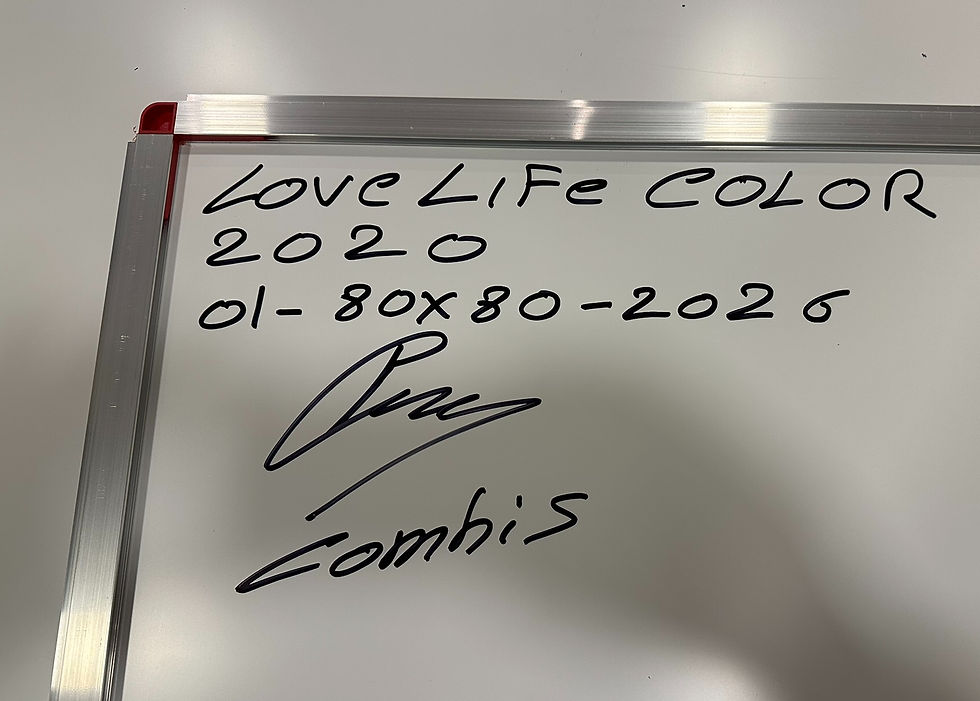 LOVE LIFE COLOR
2020
01-80x80-2026
Comhis